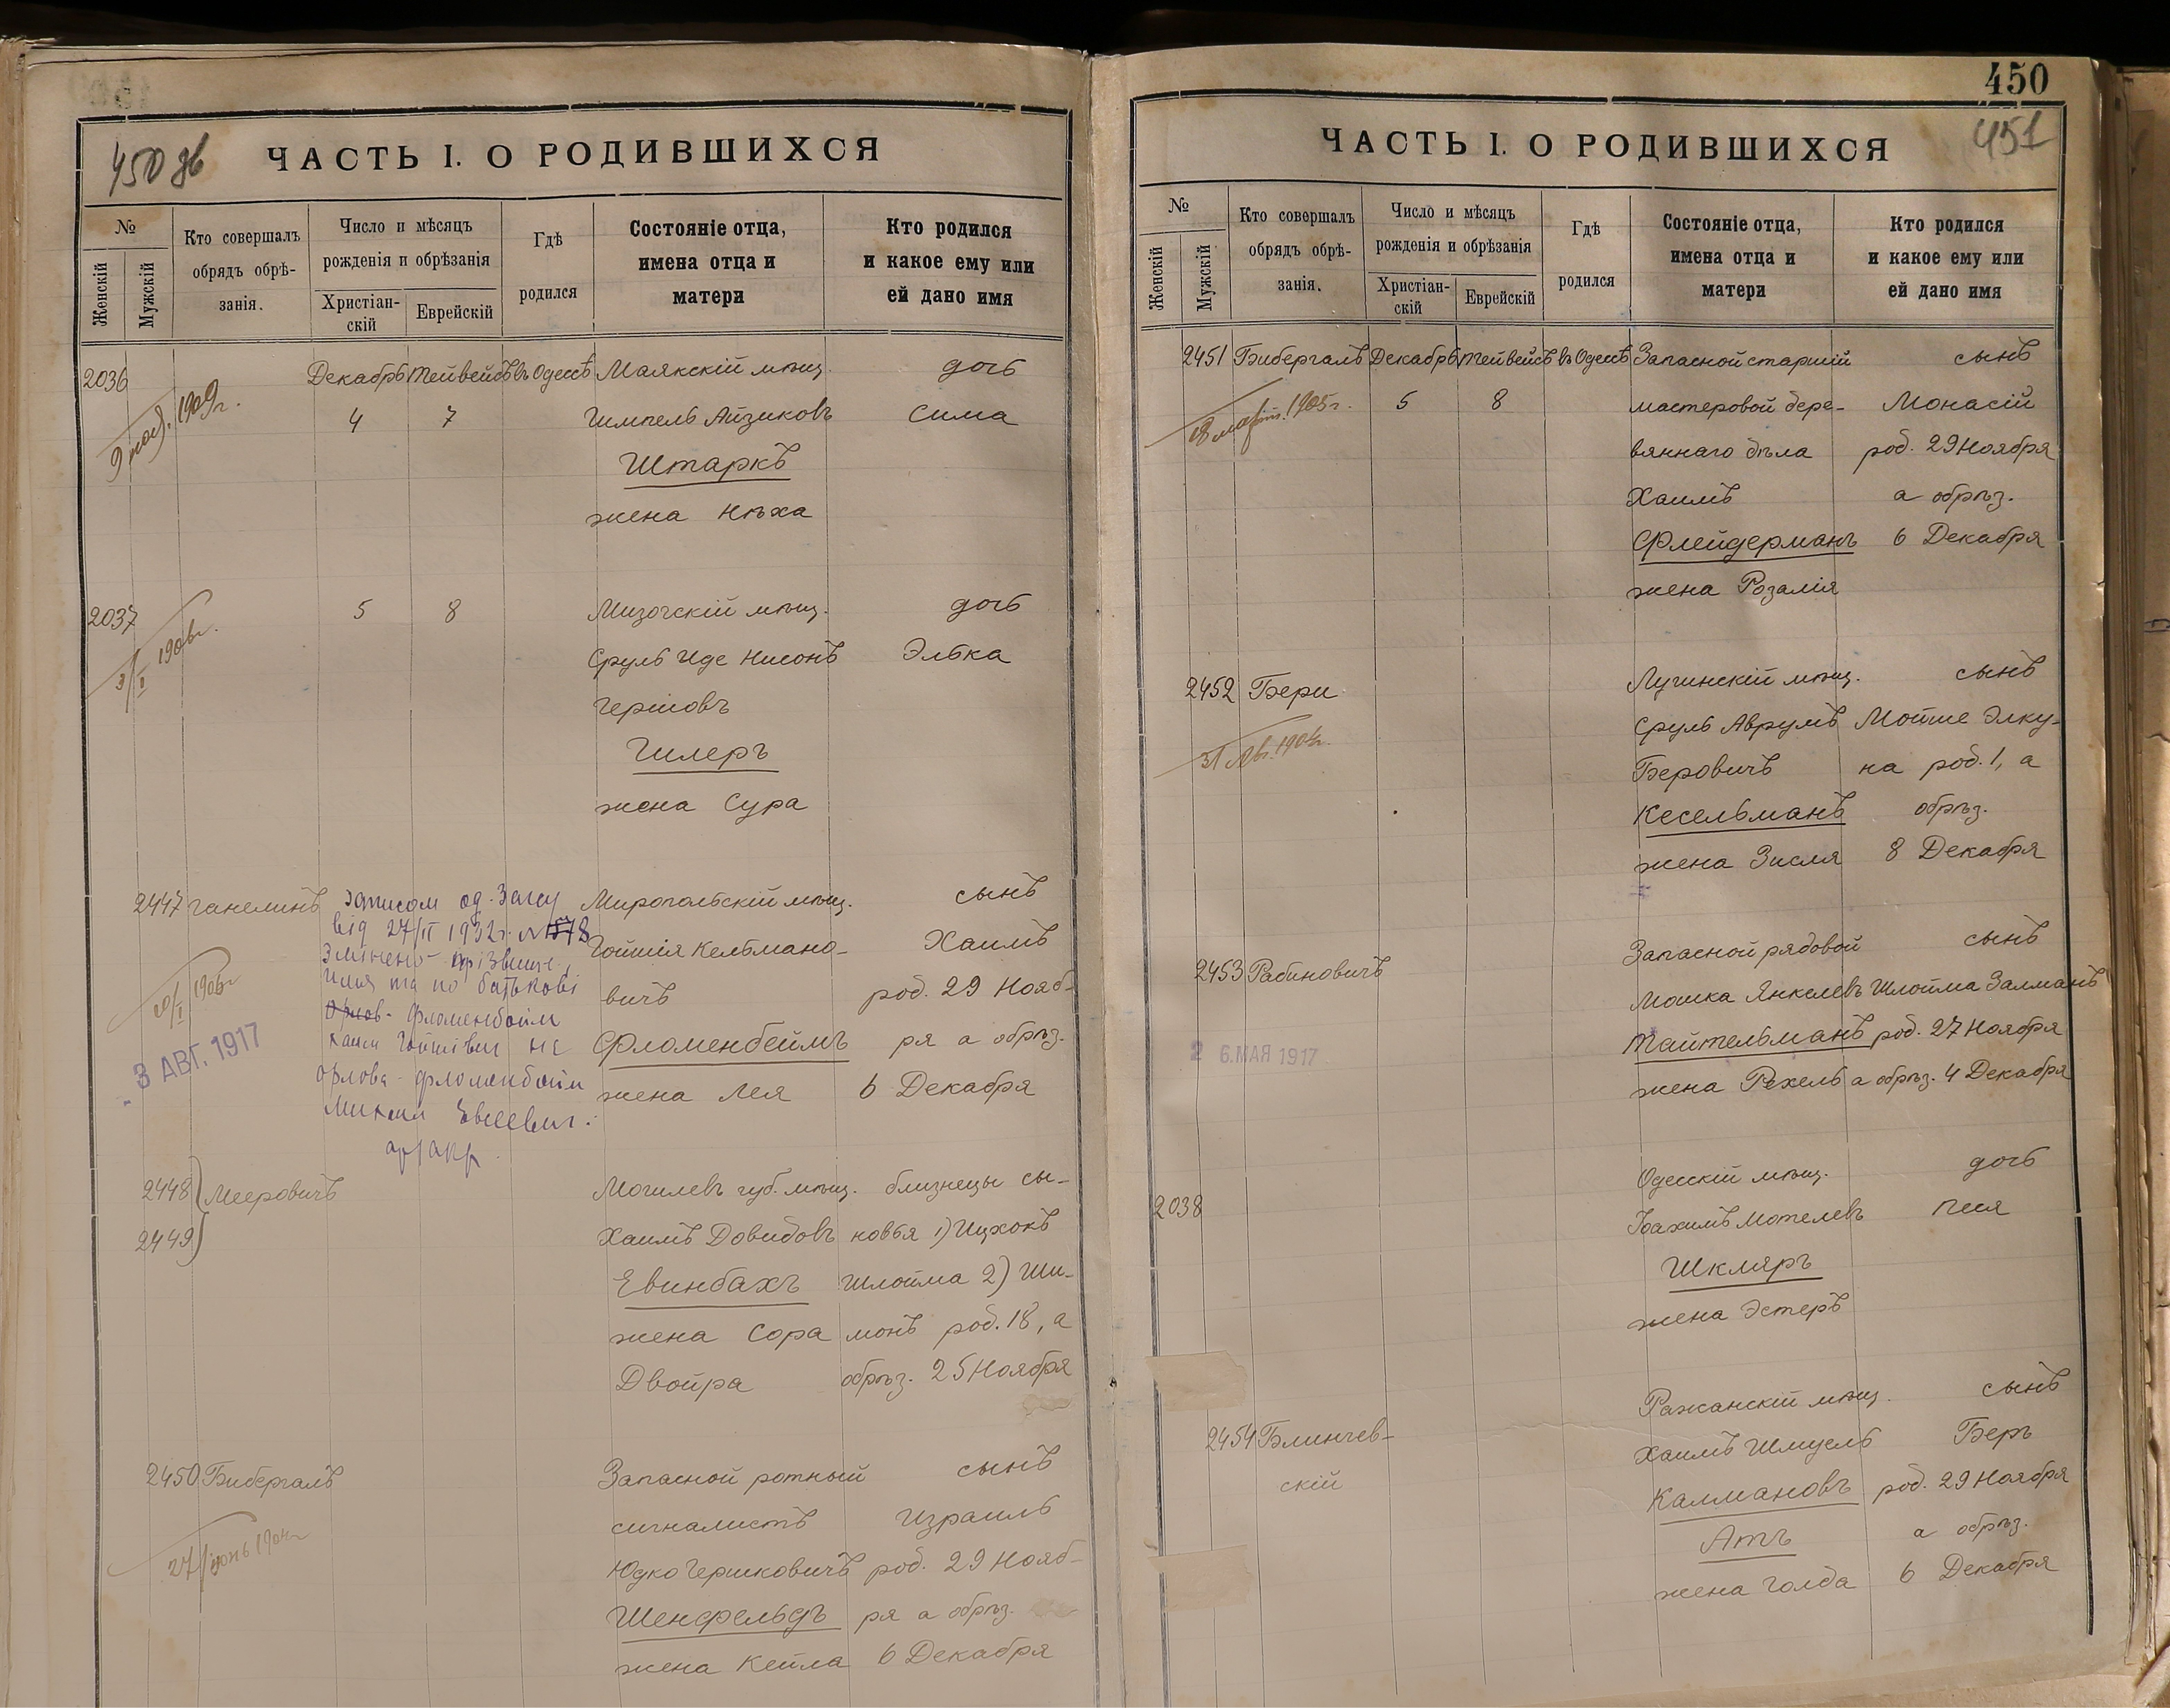 450 зв
ЧАСТЬ I. О РОДИВШИХСЯ
№
Женскій
Мужскій
Кто совершалъ
обрядъ обрѣ-
занія.
Число и мѣсяцъ
рожденія и обрѣзанія
Христіан-
скій
Еврейскій
Гдѣ
родился
Состояніе отца,
имена отца и
матери
Кто родился
и какое ему или
ей дано имя
2036 Декабрь Тейвейсъ въ Одессѣ Маякскій мѣщ. дочь
1909 г.
4 7 Гимпель Айзиковъ Сима
Штаркъ
жена Нѣха
2037 5 8 Мизочскій мѣщ. дочь
3/I 1906 г.
Сруль Иде Нисонъ Элька
Гершовъ
Гилеръ
жена Сура
2447 Ганелинъ Миропольскій мѣщ. сынъ
Записом од. Загсу
від 27/II 1932 г. №
Змінено прізвище,
имя та по батькові
Фломенбойм
Хаим Гойшіевич на
Орлова-Фломенбойм
Михаил Евсеевич.
20/I 1906 г.
3 АВГ. 1917
Гойшія Кельмано- Хаимъ
вичъ род. 29 Нояб-
Фломенбеймъ ря а обрѣз.
жена Лея 6 Декабря
2448 Мееровичъ Могилевъ губ. мѣщ. близнецы сы-
2449 Хаимъ Довидовъ новья 1) Ицхокъ
Евинбахъ Шлойма 2) Ши-
жена Сора монъ род. 18, а
Двойра обрѣз. 25 Ноября
2450 Бибергалъ Запасной ротный сынъ
27/июнь 1904 г.
сигналистъ Израиль
Юдко Гершковичъ род. 29 Нояб-
Шенфельдъ ря а обрѣз.
жена Кейла 6 Декабря
450
451
ЧАСТЬ I. О РОДИВШИХСЯ
№
Женскій
Мужскій
Кто совершалъ
обрядъ обрѣ-
занія.
Число и мѣсяцъ
рожденія и обрѣзанія
Христіан-
скій
Еврейскій
Гдѣ
родился
Состояніе отца,
имена отца и
матери
Кто родился
и какое ему или
ей дано имя
2451 Бибергалъ Декабрь Тейвейсъ въ Одессѣ Запасной старшій сынъ
1905 г.
5 8 мастеровой дере- Монасій
вяннаго дѣла род. 29 Ноября
Хаимъ а обрѣз.
Флейдерманъ 6 Декабря
жена Розалія
2452 Бери Лугинскій мѣщ. сынъ
31 Авг. 1904 г.
Сруль Аврумъ Мойше Элку-
Беровичъ на род. 1, а
Кесельманъ обрѣз.
жена Зисля 8 Декабря
2453 Рабиновичъ Запасной рядовой сынъ
2 6. МАЯ 1917
Мошка Янкелевъ Шлойма Залманъ
Тайтельманъ род. 27 Ноября
жена Рехель а обрѣз. 4 Декабря
2038 Одесскій мѣщ. дочь
Іоахимъ Мотелевъ Песя
Шкляръ
жена Эстеръ
2454 Блинчев- Ражанскій мѣщ. сынъ
скій Хаимъ Шмуель Беръ
Калмановъ род. 29 Ноября
Атъ а обрѣз.
жена Голда 6 Декабря